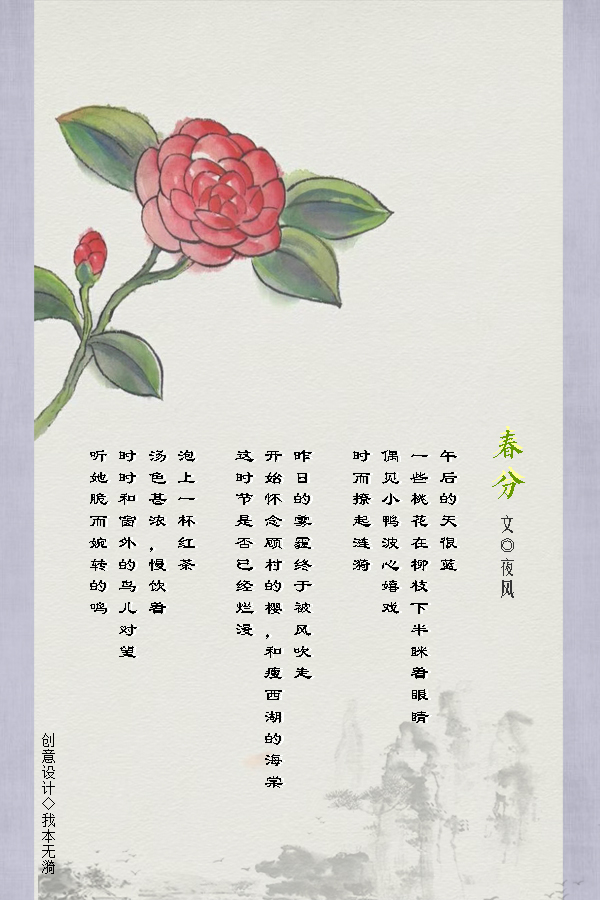 春分
文◎夜风
午后的天很蓝
一些桃花在柳枝下半眯着眼睛
偶见小鸭波心嬉戏
时而撩起涟漪
昨日的雾霾终于被风吹走
开始怀念顾村的樱，和瘦西湖的海棠
这时节是否已经烂漫
泡上一杯红茶
汤色甚浓，慢饮着
时时和窗外的鸟儿对望
听她脆而婉转的鸣
创意设计◇我本无漪